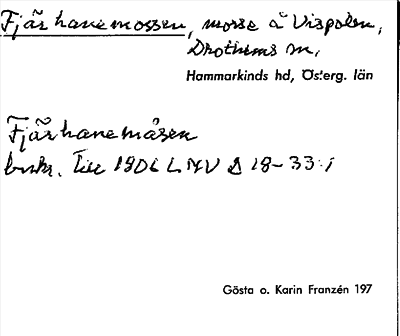 Fjärhanemossen, mosse å Vispolen,
Drothems sn,
Hammarkinds hd, Österg. län
Fjärhanemåsen
beskr. till 1806 LMV D 18-33:1
Gösta o. Karin Franzén 197